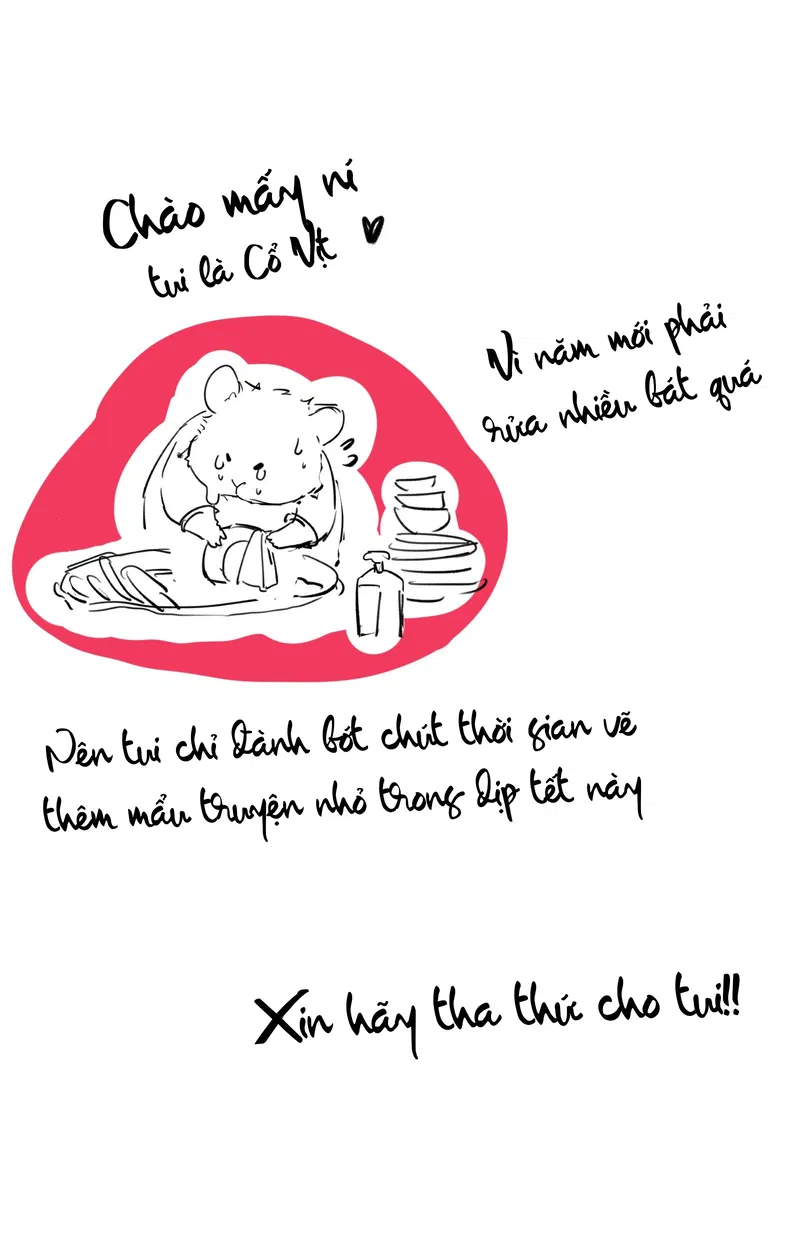 Chào mấy ní
tui là Cổ Vịt
Vì năm mới phải
rửa nhiều bát quá
Nên tui chỉ dành bớt chút thời gian vẽ
thêm mẩu truyện nhỏ trong dịp tết này
Xin hãy tha thứ cho tui!!